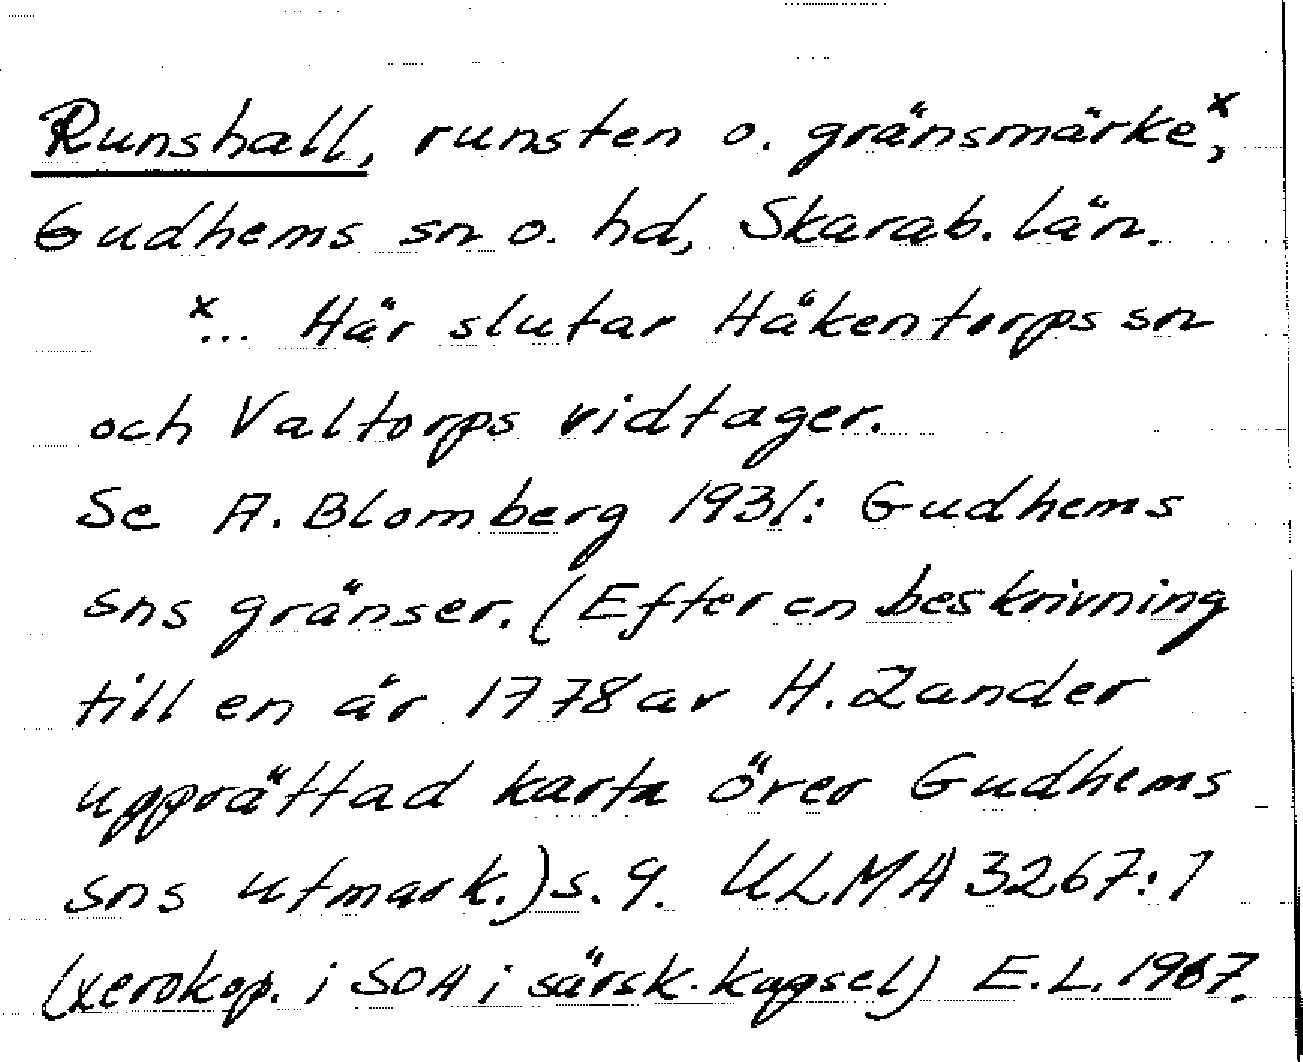 Runshall, runsten o. gränsmärkeˣ,
Gudhems sn o. hd, Skarab. län.
ˣ... Här slutar Håkentorps sn
och Valtorps vidtager.
Se A. Blomberg 1931: Gudhems
sns gränser. (Efter en beskrivning
till en år 1778 av H. Zander
upprättad karta över Gudhems
sns utmark.) s. 9. ULMA 3267:1
(xerokop. i SOA i särsk. kapsel) E.L. 1967.